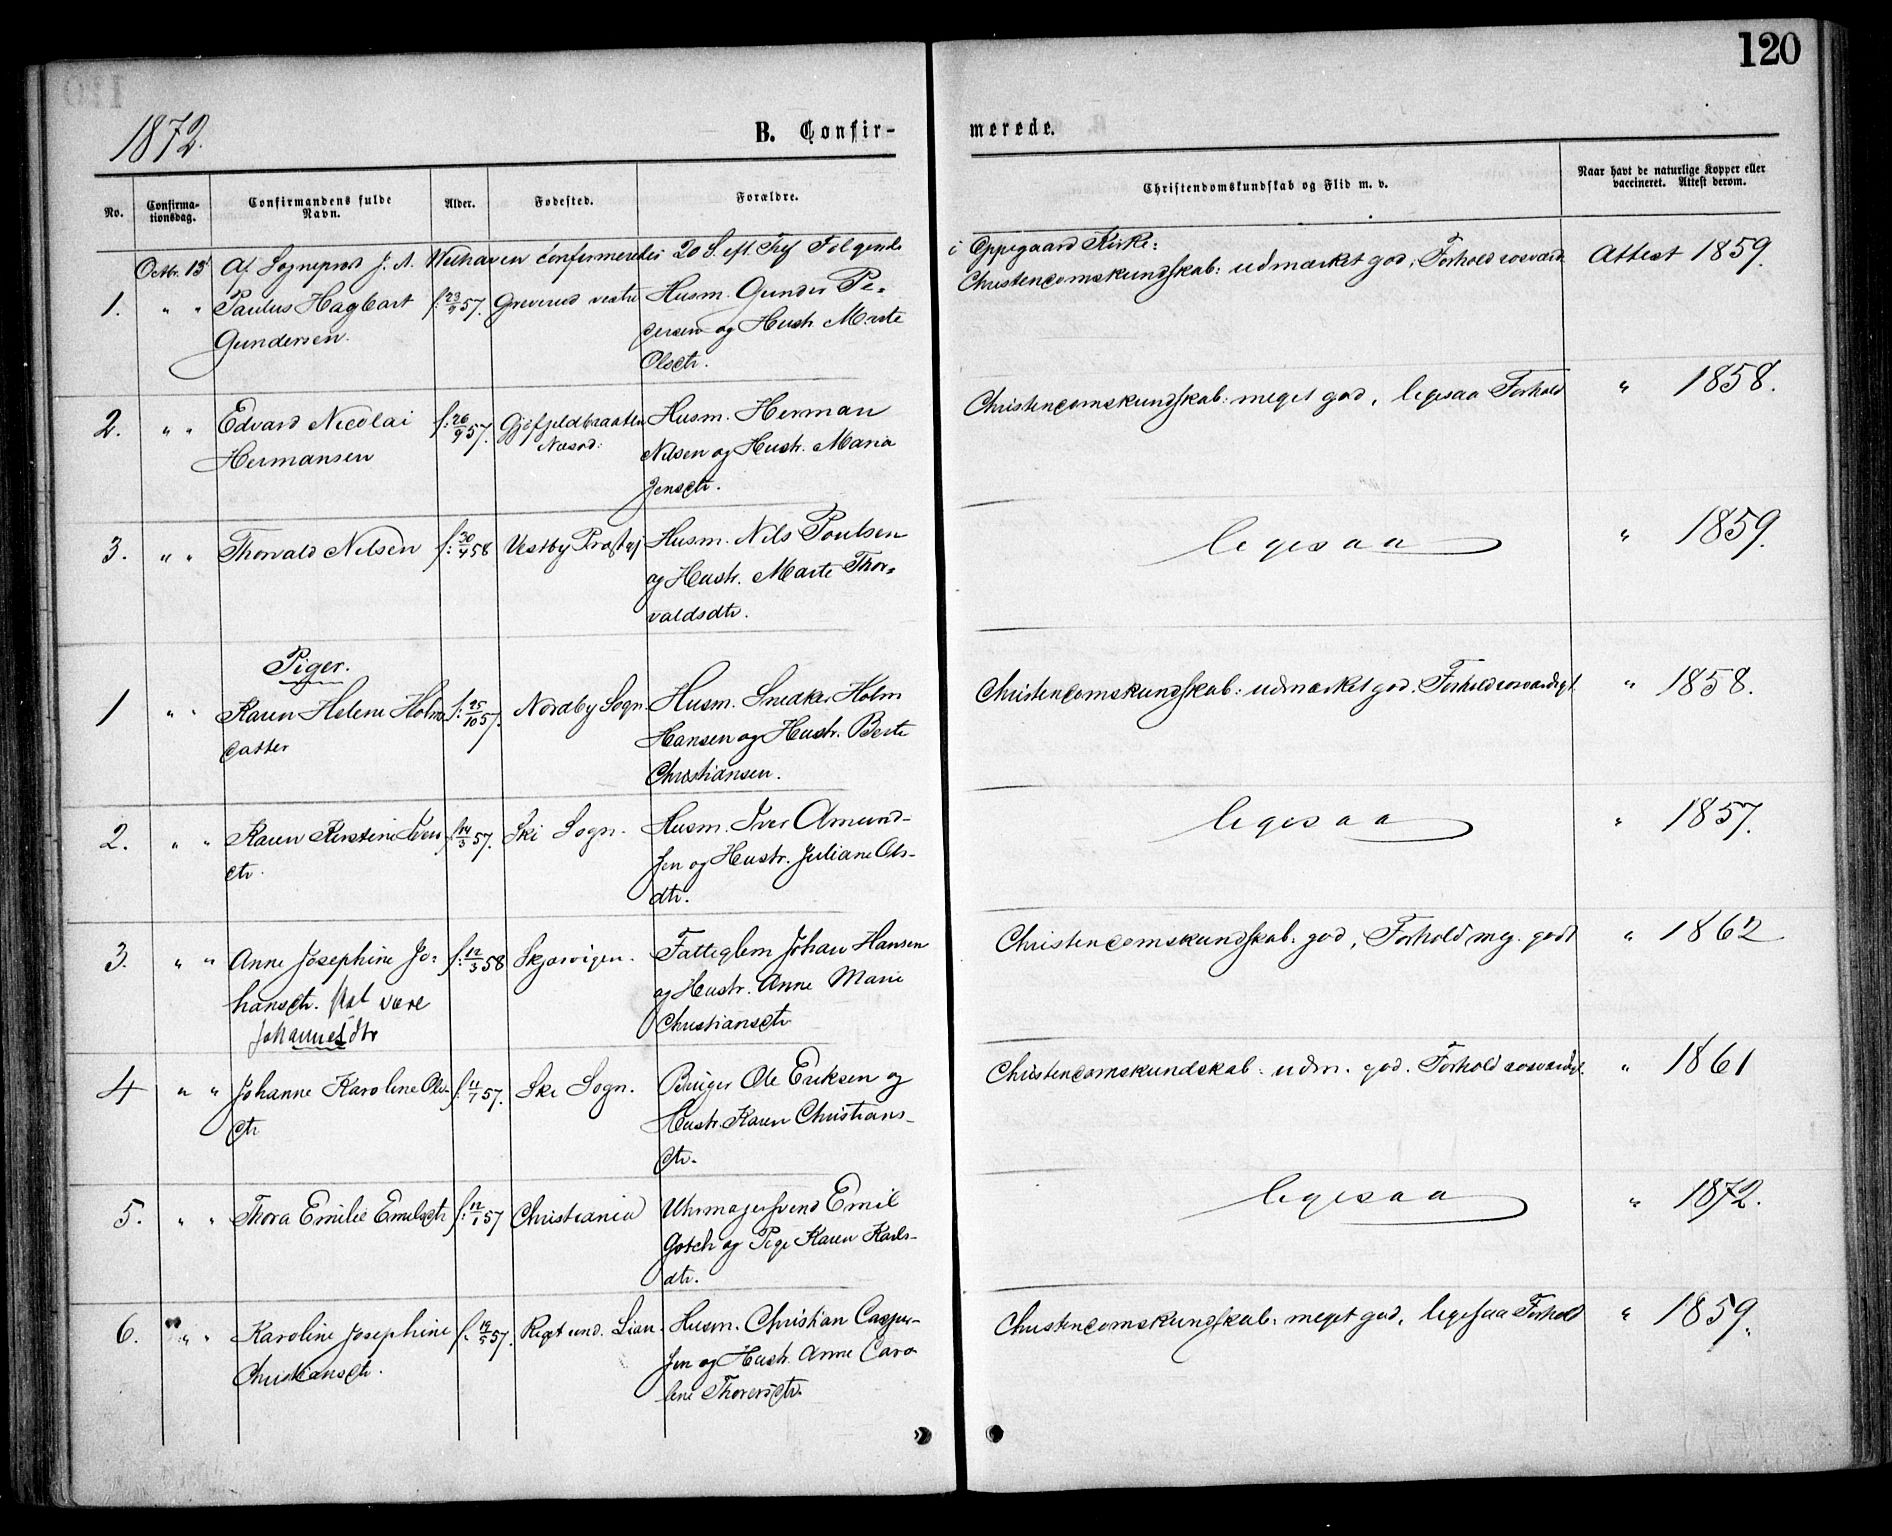 120
1872.
B. Confir-
merede.
No.
Confirma-
tionsdag.
Confirmandens fulde
Navn.
Alder.
Fødested.
Forældre.
Christendomskundskab og Flid m. v.
Naar havt de naturlige Kopper eller
vaccineret. Attest derom.
Octbr. 13 Af Sognepræst J. A. confirmeredes 20 S. eft. Tref Følgende i Oppegaard Kirke:
1. " " Paulus Hagbart f: 23/9 57. Greverud vestre Husm. Gunder Pe- Christendomskundskab: udmærket god, Forhold rosværd. Attest 1859.
Gundersen. dersen og Hustr. Marte
Olsdtr.
2. " " Edvard Nicolai f: 26/9 57. Gjøfjeldbraaten Husm. Herman Christendomskundskab: meget god, ligesaa Forhold " 1858.
Hermansen Næsod: Nilsen og Hustr. Maria
Jensdtr.
3. " " Thorvald Nilsen f: 30/4 58 Vestby Præstgj Husm. Nils Poulsen ligesaa " 1859.
og Hustr. Marte Thor-
valdsdtr.
Piger.
1 " " Karen Helene Holm f: 25/10 57. Nordby Sogn. Husm. Snedker Holm Christendomskundskab: udmærket god. Forhold rosværdigt " 1858.
datter Hansen og Hustr. Berte
Christiansen.
2. " " Karen Kirstine Iver 14/3 57. Ski Sogn. Husm. Iver Amund- ligesaa " 1857.
dtr. sen og Hustr. Juliane Ols-
dtr.
3. " " Anne Josephine Jo- f: 12/3 58 Skjærvigen. Fatteglem Johan Hansen Christendomskundskab: god, Forhold meg. godt " 1862
hansdtr. skal være og Hustr. Anne Marie
Johannesdtr Christiansdtr
4 " " Johanne Karoline Ols- f: 11/7 57. Ski Sogn. Bruger Ole Eriksen og Christendomskundskab: udm. god. Forhold rosværdigt. " 1861
dtr Hustr. Karen Christians-
dtr.
5. " " Thora Emilie Emilsdtr f: 12/1 57 Christiania Uhrmagersvend Emil ligesaa " 1872.
Gotch og Pige Karen Karls-
dtr.
6. " " Karoline Josephine f: 19/5 57. Riget und. Lian Husm. Christian Casper- Christendomskundskab: meget god, ligesaa Forhold " 1859.
Christiansdtr. sen og Hustr. Anne Caro
line Thorersdtr.